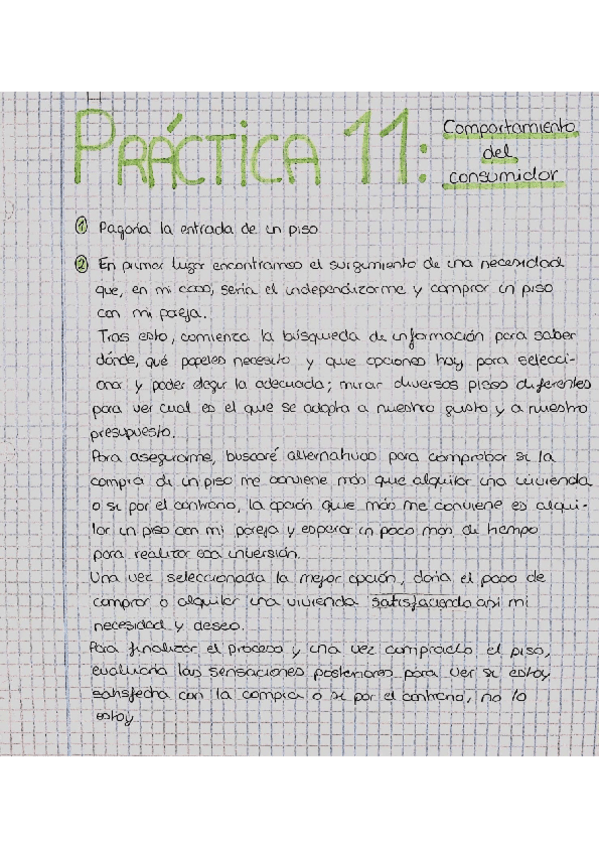 PRÁCTICA 11: Comportamiento
del
consumidor
① Pagaría la entrada de un piso
② En primer lugar encontramos el surgimiento de una necesidad
que, en mi caso, sería el independizarme y comprar un piso
con mi pareja.
Tras esto, comienza la búsqueda de información para saber
dónde, qué papeles necesito y que opciones hay para selecci-
onar y poder elegir la adecuada; mirar diversos pisos diferentes
para ver cual es el que se adapta a nuestro gusto y a nuestro
presupuesto.
Para asegurarme, buscaré alternativas para comprobar si la
compra de un piso me conviene más que alquilar una vivienda
o si por el contrario, la opción que más me conviene es alqui-
lar un piso con mi pareja y esperar un poco más de tiempo
para realizar esa inversión.
Una vez seleccionada la mejor opción, daría el paso de
comprar o alquilar una vivienda satisfaciendo así mi
necesidad y deseo.
Para finalizar el proceso y una vez comprado el piso,
evaluaría las sensaciones posteriores para ver si estoy
satisfecha con la compra o si por el contrario, no lo
estoy